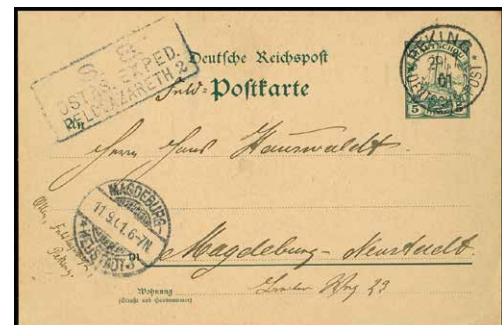 S. B.
OSTAS. EXPED.
FELDLAZARETH 2
Deutsche Reichspost
Feld-Postkarte
An
PEKING
DEUTSCHE
01
5 5
Herrn Hans Hauswaldt.
MAGDEBURG
11.9.01.6-7N.
NEUSTADT
Magdeburg-Neustadt.
Wohnung
(Straße und Hausnummer)